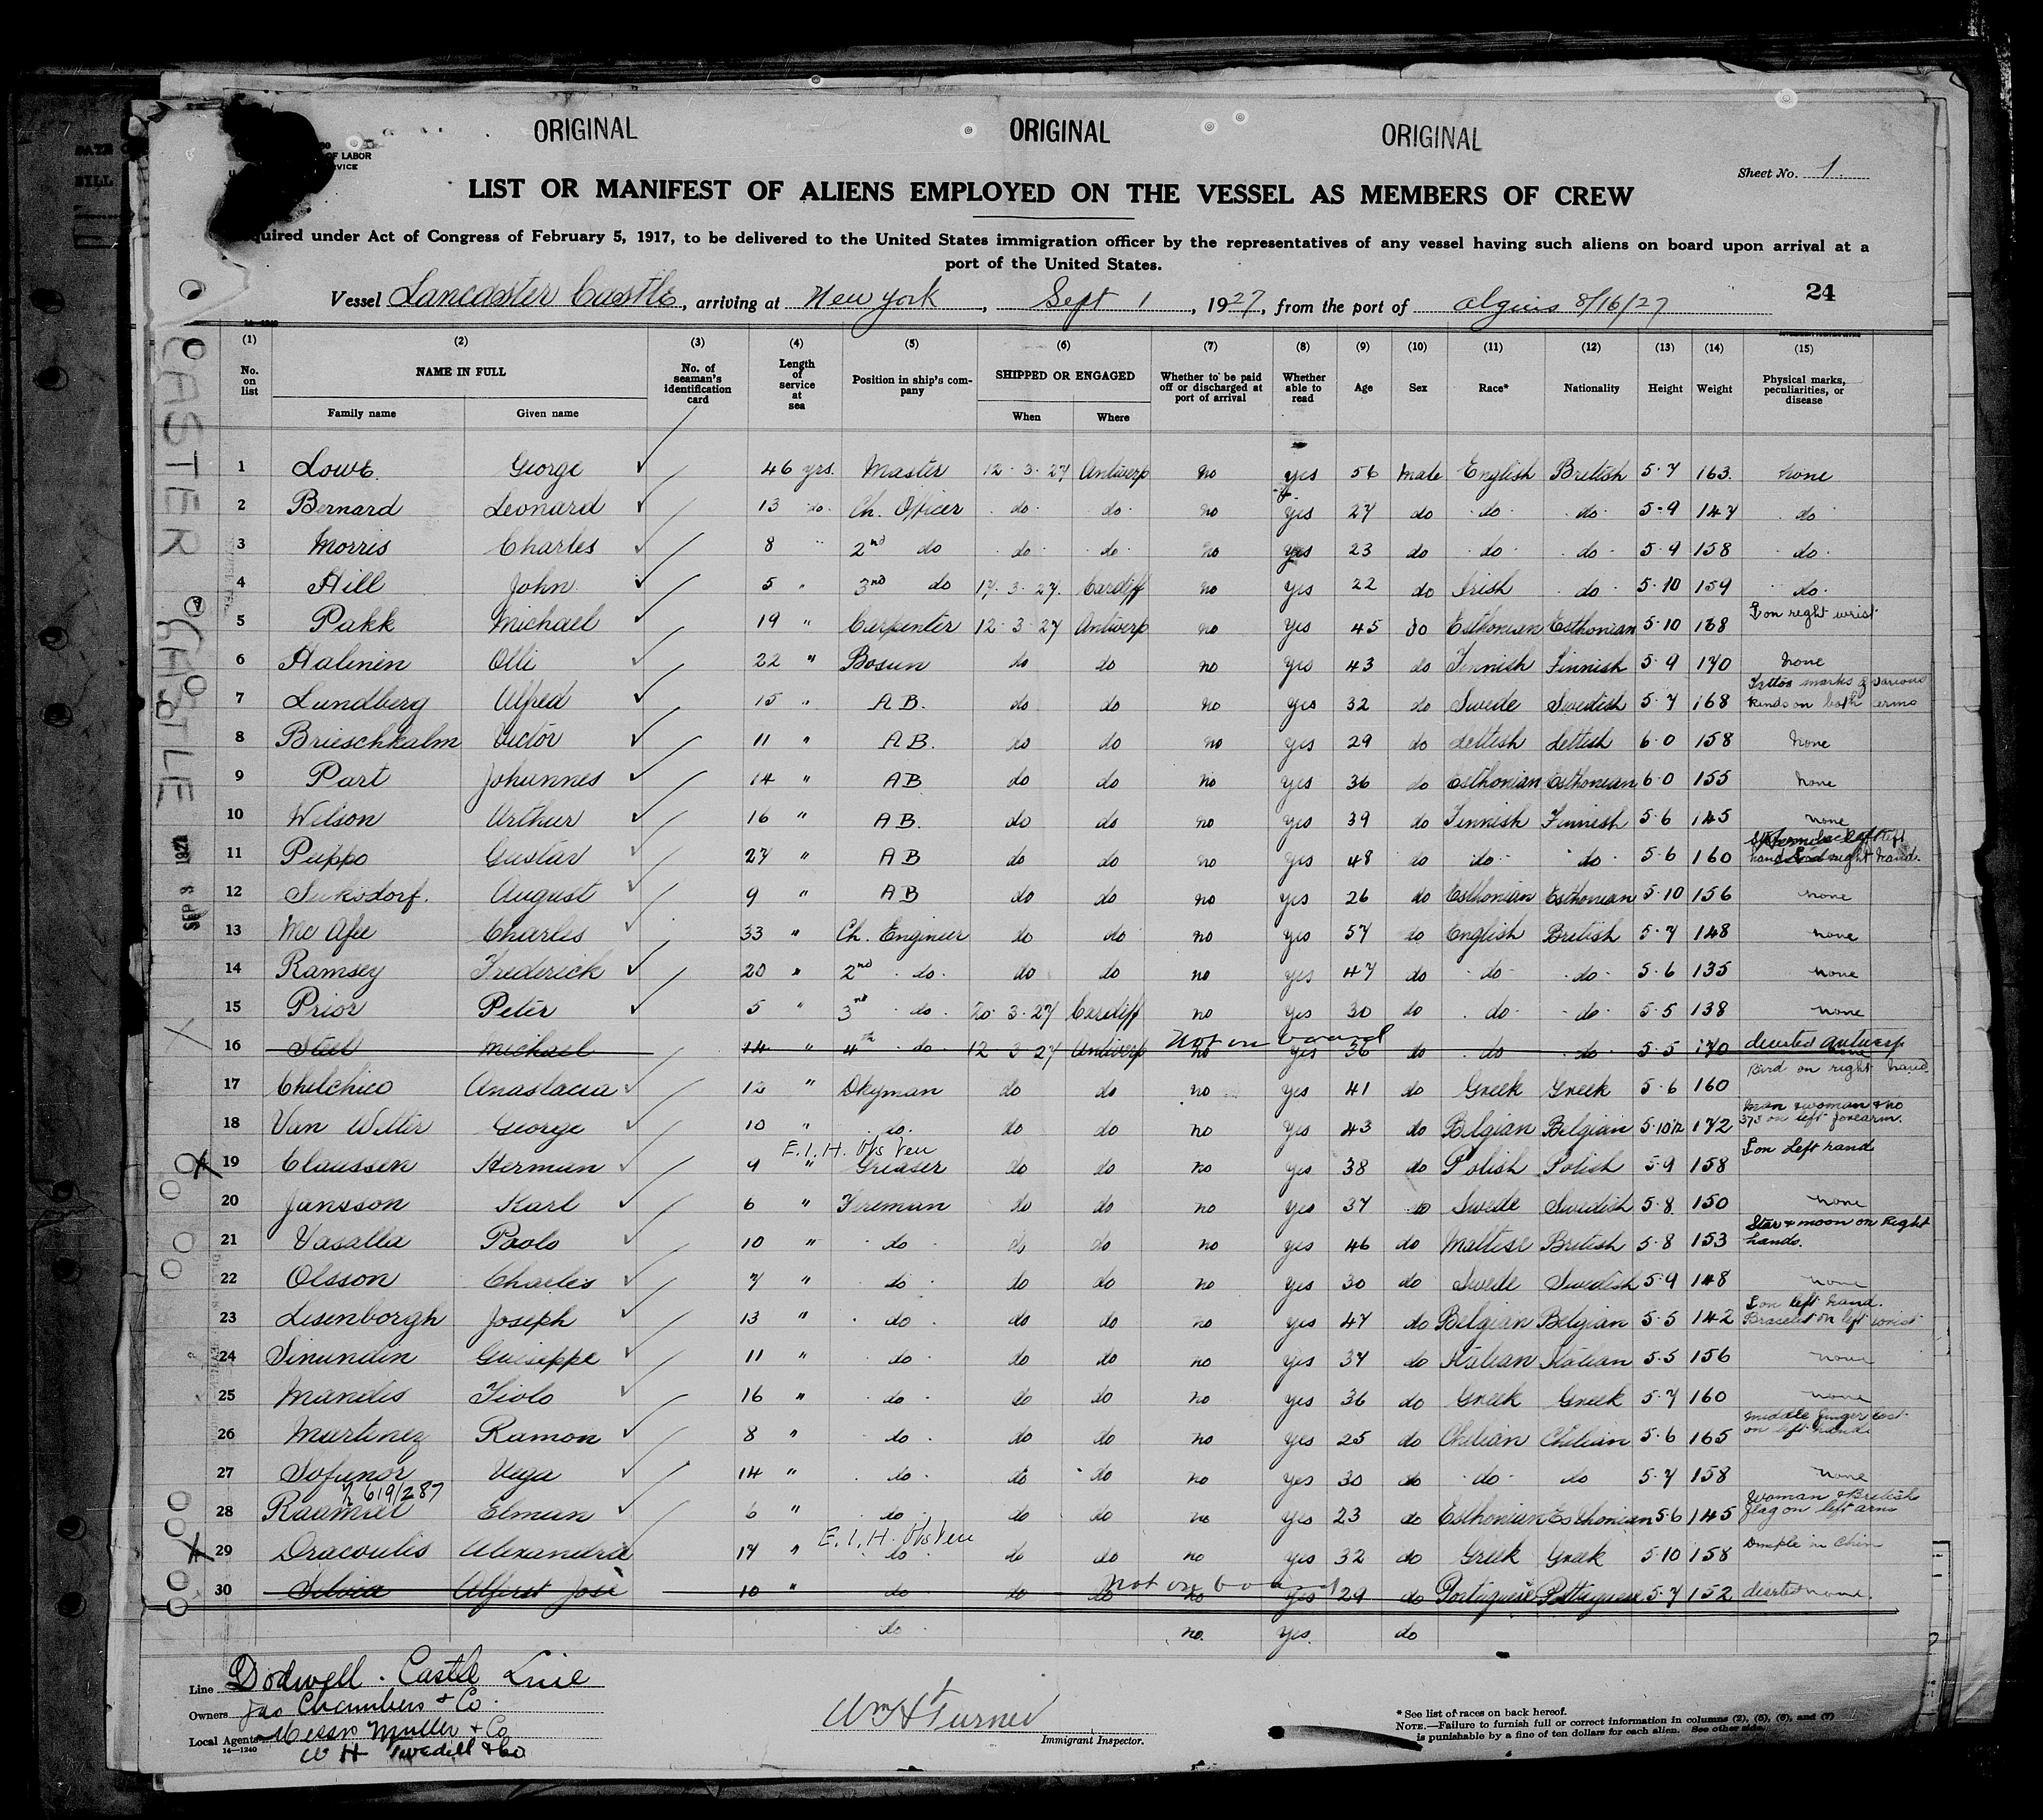 ORIGINAL ORIGINAL ORIGINAL
OF LABOR
Sheet No. 1.
LIST OR MANIFEST OF ALIENS EMPLOYED ON THE VESSEL AS MEMBERS OF CREW
quired under Act of Congress of February 5, 1917, to be delivered to the United States immigration officer by the representatives of any vessel having such aliens on board upon arrival at a
port of the United States.
24
Vessel Lancaster Castle, arriving at New York, Sept 1, 1927, from the port of Algiers 8/16/27
(1) (2) (3) (4) (5) (6) (7) (8) (9) (10) (11) (12) (13) (14) (15)
No. on list NAME IN FULL Family name Given name No. of seaman's identification card Length of service at sea Position in ship's company SHIPPED OR ENGAGED When Where Whether to be paid off or discharged at port of arrival Whether able to read Age Sex Race* Nationality Height Weight Physical marks, peculiarities, or disease
1 Lowe George 46 yrs. Master 12-3-27 Antwerp no yes 56 male English British 5-7 163 none
2 Bernard Leonard 13 do Ch. Officer do do no yes 27 do do do 5-9 147 do
3 Morris Charles 8 " 2nd do do do no yes 23 do do do 5-9 158 do
4 Hill John 5 " 3rd do 17-3-27 Cardiff no yes 22 do Irish do 5-10 159 do
5 Pakk Michael 19 " Carpenter 12-3-27 Antwerp no yes 45 do Esthonian Esthonian 5-10 168 on right wrist
6 Halinin Olli 22 " Bosun do do no yes 43 do Finnish Finnish 5-9 170 none
7 Lundberg Alfred 15 " A B. do do no yes 32 do Swede Swedish 5-7 168 Tattoo marks of various kinds on both arms
8 Brieschkalm Victor 11 " A B. do do no yes 29 do Lettish Lettish 6-0 158 none
9 Part Johannes 14 " A B do do no yes 36 do Esthonian Esthonian 6-0 155 none
10 Wilson Arthur 16 " A B. do do no yes 39 do Finnish Finnish 5-6 145 none
11 Puppo Gustav 27 " A B do do no yes 48 do do do 5-6 160 right hand.
12 Suksdorf. August 9 " A B do do no yes 26 do Esthonian Esthonian 5-10 156 none
13 Mc Afee Charles 33 " Ch. Engineer do do no yes 57 do English British 5-7 148 none
14 Ramsey Frederick 20 " 2nd do do do no yes 47 do do do 5-6 135 none
15 Prior Peter 5 " 3rd do 20-3-27 Cardiff no yes 30 do do do 5-5 138 none
16 Steel Michael 14 " 4th do 12-3-27 Antwerp Not on board no yes 36 do do do 5-5 170 deserted Antwerp
17 Chilchico Anastacia 12 " Dkyman do do no yes 41 do Greek Greek 5-6 160 Bird on right hand
18 Van Witter George 10 " do. do do no yes 43 do Belgian Belgian 5-10½ 172 Man & woman & no 373 on left forearm.
E.I.H. Obs Ven
19 Claussen Herman 9 " Greaser do do no yes 38 do Polish Polish 5-9 158 on Left hand
20 Jansson Karl 6 " Fireman do do no yes 37 do Swede Swedish 5-8 150 none
21 Vasalla Paolo 10 " do do do no yes 46 do Maltese British 5-8 153 Star & moon on Right hands.
22 Olsson Charles 7 " do do do no yes 30 do Swede Swedish 5-9 148 none
23 Lisenborgh Joseph 13 " do do do no yes 47 do Belgian Belgian 5-5 142 on left hand. Bracelet on left wrist
24 Sinundin Guiseppe 11 " do do do no yes 37 do Italian Italian 5-5 156 none
25 Mandis Tiolo 16 " do do do no yes 36 do Greek Greek 5-7 160 none
26 Martinez Ramon 8 " do do do no yes 25 do Chilian Chilian 5-6 165 middle finger lost on left hand
27 Sofanor Vega 14 " do do do no yes 30 do do do 5-7 158 none
619/287
28 Raamat Elman 6 " do do do no yes 23 do Esthonian Esthonian 5-6 145 Woman & British flag on left arm
E.I.H. Obs Ven
29 Dracoulis Alexandria 17 " do do do no yes 32 do Greek Greek 5-10 158 Dimple in chin
30 Silvia Alfirst José 10 " do do do not on board no yes 29 do Portuguese Portuguese 5-7 152 deserted none.
do no. yes. do
Line Dodwell. Castle Line
Owners Jas Chambers & Co.
Local Agents Messrs Muller & Co
W H Tweddell & Co
14—1240
Wm H Turner
Immigrant Inspector.
* See list of races on back hereof.
NOTE.—Failure to furnish full or correct information in columns (2), (5), (6), and (7)
is punishable by a fine of ten dollars for each alien. See other side.
CASTER CASTLE
SEP 8 1927